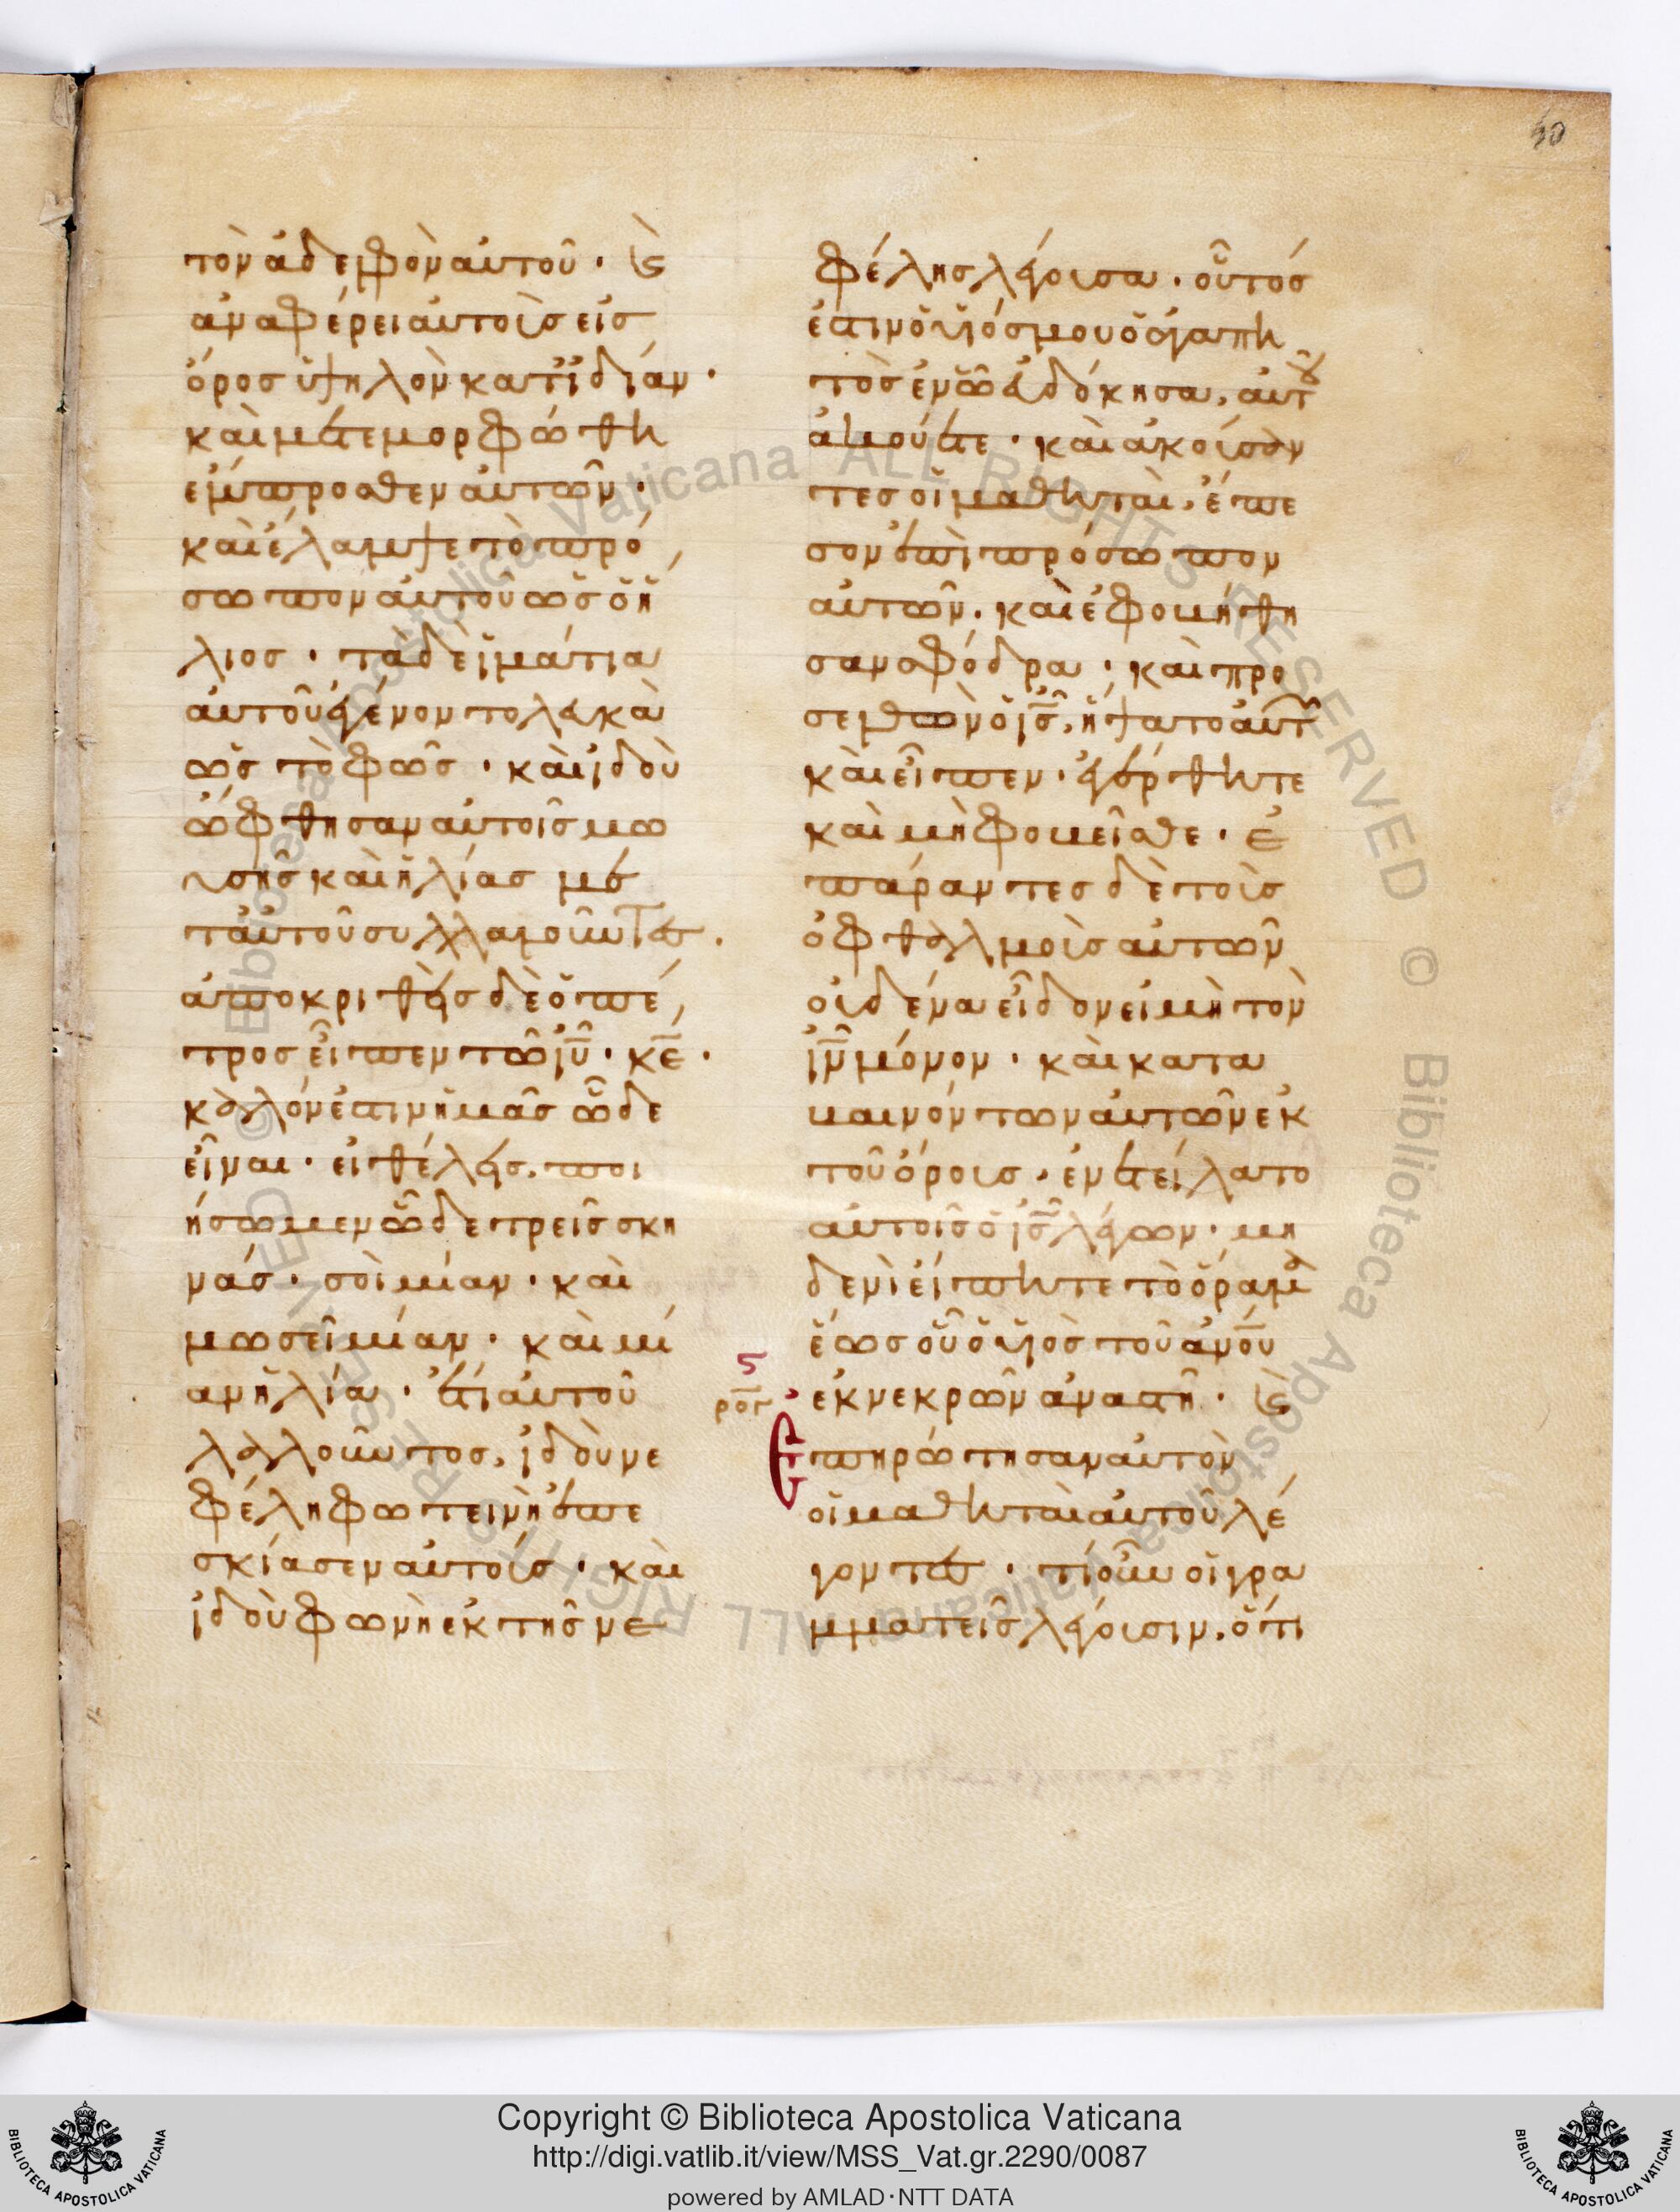 40
τὸν ἀδελφὸν αὐτοῦ · καὶ
ἀναφέρει αὐτοὺς εἰς
ὄρος ὑψηλὸν κατ' ἰδίαν ·
καὶ μετεμορφώθη
ἔμπροσθεν αὐτῶν ·
καὶ ἔλαμψε τὸ πρό
σωπον αὐτοῦ ὡς ὁ ἥ
λιος · τὰ δὲ ἱμάτια
αὐτοῦ ἐγένοντο λευκὰ
ὡς τὸ φῶς · καὶ ἰδοὺ
ὤφθησαν αὐτοῖς μω
υσῆς καὶ ἠλίας με
τ' αὐτοῦ συλλαλοῦντες ·
ἀποκριθεὶς δὲ ὁ πέ
τρος εἶπεν τῶ ἰῦ · κε ·
καλόν ἐστιν ἡμᾶς ὧδε
εἶναι · εἰ θέλεις, ποι
ήσωμεν ὧδε τρεῖς σκη
νάς · σοὶ μίαν · καὶ
μωσεῖ μίαν · καὶ μί
αν ἠλία · ἔτι αὐτοῦ
λαλοῦντος, ἰδοὺ νε
φέλη φωτεινὴ ἐπε
σκίασεν αὐτούς · καὶ
ἰδοὺ φωνὴ ἐκ τῆς νε
φέλης λέγουσα · οὗτός
ἐστιν ὁ υἱός μου ὁ ἀγαπη
τὸς ἐν ὧ εὐδόκησα, αὐτοῦ
ἀκούετε · καὶ ἀκούσαν
τες οἱ μαθηταὶ, ἔπε
σον ἐπὶ πρόσωπον
αὐτῶν · καὶ ἐφοβήθη
σαν σφόδρα · καὶ προ
σελθὼν ὁ ἰς, ἥψατο αὐτῶν
καὶ εἶπεν · ἐγέρθητε
καὶ μὴ φοβεῖσθε · ἐ
πάραντες δὲ τοὺς
ὀφθαλμοὺς αὐτῶν
οὐδένα εἶδον εἰ μὴ τὸν
ἰν μόνον · καὶ κατα
βαινόντων αὐτῶν ἐκ
τοῦ ὄρους, ἐνετείλατο
αὐτοῖς ὁ ἰς λέγων · μη
δενὶ εἴπητε τὸ ὅραμα
ἕως οὗ ὁ υἱὸς τοῦ ἀνου
ἐκ νεκρῶν ἀναστῆ · καὶ
ροβ
ς
Επηρώτησαν αὐτὸν
οἱ μαθηταὶ αὐτοῦ λέ
γοντες · τί οὖν οἱ γρα
μματεῖς λέγουσιν, ὅτι
Copyright © Biblioteca Apostolica Vaticana
http://digi.vatlib.it/view/MSS_Vat.gr.2290/0087
powered by AMLAD·NTT DATA
BIBLIOTECA APOSTOLICA VATICANA
BIBLIOTECA APOSTOLICA VATICANA
© Biblioteca Apostolica Vaticana ALL RIGHTS RESERVED
© Biblioteca Apostolica Vaticana ALL RIGHTS RESERVED